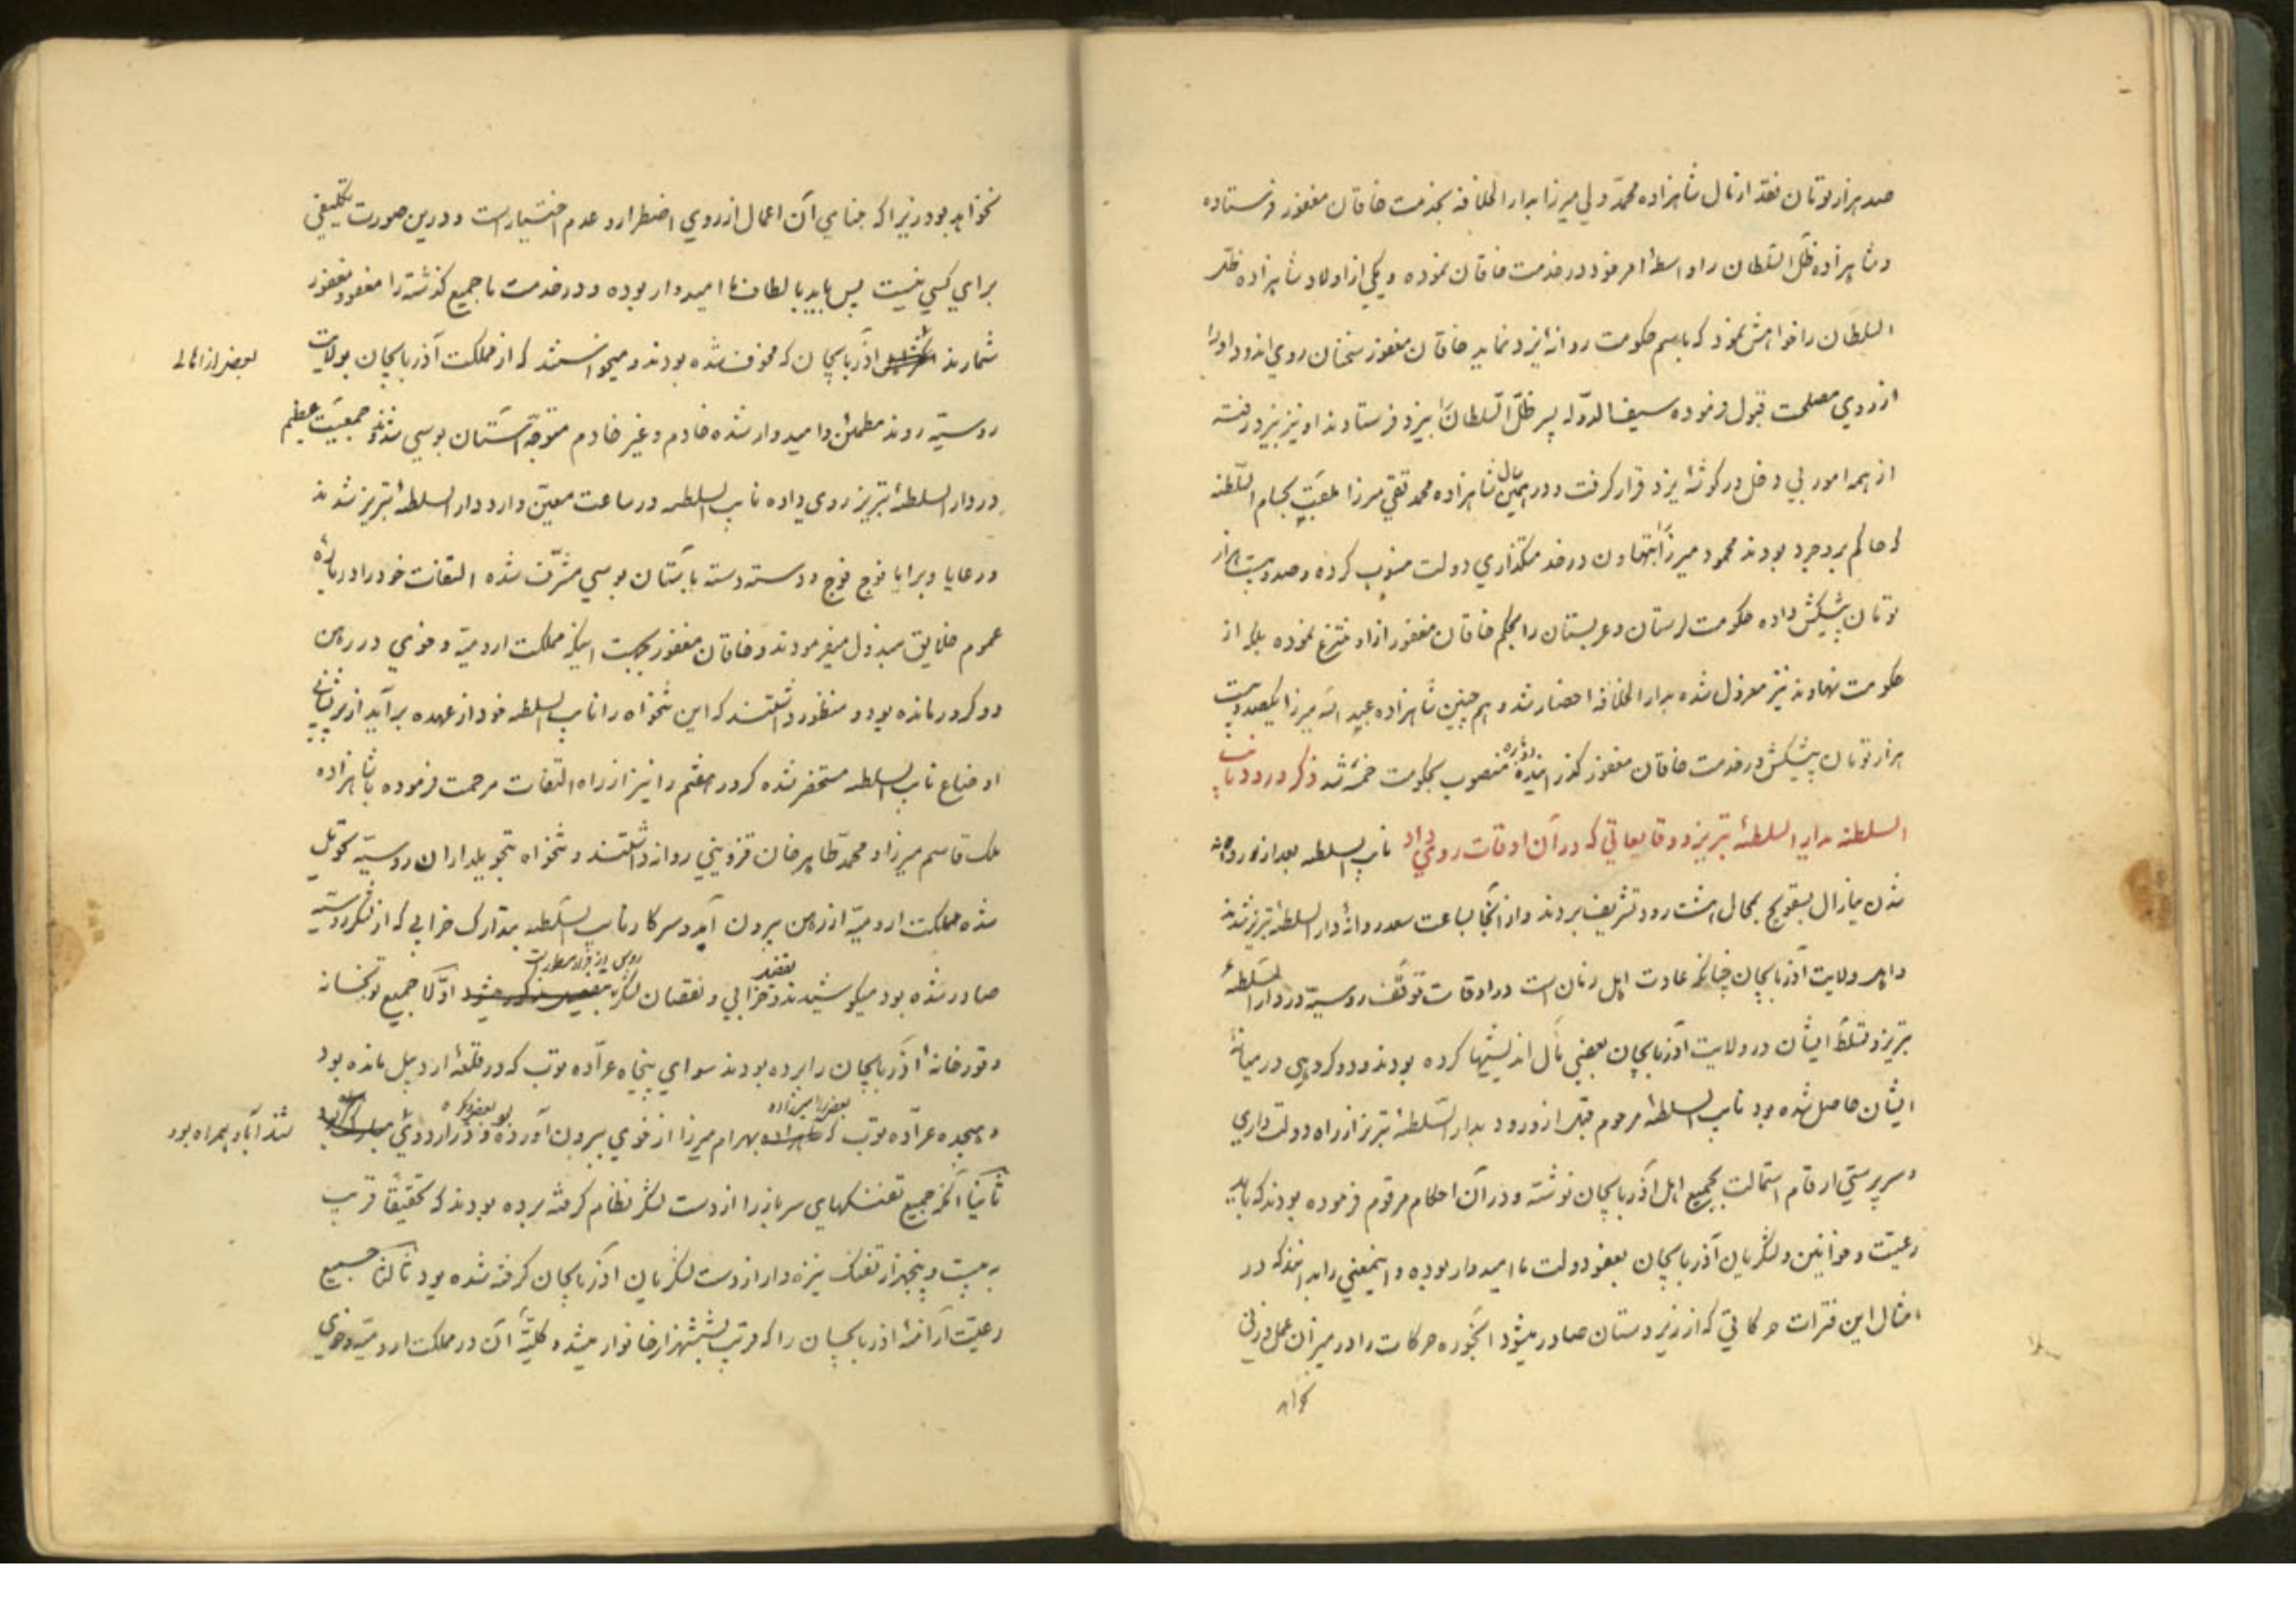 صد هزار تومان نقد از مال شاهزاده محمد ولی میرزا بدار الخلافه بخدمت خاقان مغفور فرستاده
و شاهزاده ظل السلطان را واسطهٔ امر خود در خدمت خاقان نموده و یکی از اولاد شاهزاده ظل
السلطان را خواهش نمود که باسم حکومت روانهٔ یزد نماید خاقان مغفور سخنان روی اندود او را
از روی مصلحت قبول فرموده سیف الدوله پسر ظل السلطان را بیزد فرستادند او نیز بیزد رفته
از همه امور بی دخل در گوشهٔ یزد قرار گرفت و در همین سال شاهزاده محمد تقی میرزا ملقب بحسام السلطنه
که حاکم بروجرد بودند محمود میرزا را بتهاون در خدمتگذاری دولت منسوب کرده و صد و بیست هزار
تومان پیشکش داده حکومت لرستان و عربستان را بحکم خاقان مغفور از او منتزع نموده بلکه از
حکومت نهاوند نیز معزول شده بدار الخلافه احضار شد و هم چنین شاهزاده عبد الله میرزا یکصد و بیست
هزار تومان پیشکش در خدمت خاقان مغفور گذرانیده دوباره منصوب بحکومت خمسه شد ذکر ورود نایب
السلطنه بدار السلطنهٔ تبریز و وقایعاتی که در آن اوقات روی داد نایب السلطنه بعد از
شدن جنرال بسقویچ بمحال هشت رود تشریف بردند و از آنجا بساعت سعد روانهٔ دار السلطنهٔ تبریز شدند
و اهل ولایت آذربایجان چنانکه عادت اهل زمان است در اوقات توقف روسیه در دار السلطنهٔ
تبریز و تسلط ایشان در ولایت آذربایجان بعضی مآل اندیشیها کرده بودند و دو گروهی در میانهٔ
ایشان حاصل شده بود نایب السلطنهٔ مرحوم قبل از ورود بدار السلطنهٔ تبریز از راه دولت داری
و سرپرستی ارقام استمالت بجمیع اهل آذربایجان نوشته و در آن احکام مرقوم فرموده بودند که باید
رعیت و خوانین و لشکریان آذربایجان بعفو دولت ما امیدوار بوده و اینمعنی را بدانند که در
امثال این فترات حرکاتی که از زیردستان صادر میشود آنگونه حرکات را در میزان عمل وزنی
نخواهد بود زیرا که بنای آن اعمال از روی اضطرار و عدم اختیار است و درین صورت تکلیفی
برای کسی نیست پس باید بالطاف ما امیدوار بوده و در خدمت ما جمیع گذشته را معفو و مغفور
شمارند آذربایجان که مخوف شده بودند و میخواستند که از مملکت آذربایجان بولایت
بعضی از اهالی
روسیه روند مطمئن و امیدوار شده خادم و غیر خادم متوجه آستان بوسی شدند و جمعیت عظیم
در دار السلطنهٔ تبریز روی داده نایب السلطنه در ساعت معین وارد دار السلطنهٔ تبریز شدند
و رعایا و برایا فوج فوج و دسته دسته بآستان بوسی مشرف شده التفات خود را دربارهٔ
عموم خلایق مبذول میفرمودند و خاقان مغفور بجهت اینکه مملکت ارومیه و خوی در رهن
دو کرور مانده بود و منظور داشتند که این تنخواه را نایب السلطنه خود از عهده برآید از پریشانی
اوضاع نایب السلطنه مستحضر شده کرور هفتم را نیز از راه التفات مرحمت فرموده با شاهزاده
ملک قاسم میرزا و محمد طاهر خان قزوینی روانه داشتند و تنخواه بتحویلداران روسیه تحویل
شده مملکت ارومیه از رهن بیرون آمد و سرکار نایب السلطنه بتدارک خرابی که از لشکر روسیه
صادر شده بود میکوشیدند و خرابی و نقصان لشکر اولا جمیع توپخانه
و قورخانهٔ آذربایجان را برده بودند سوای پنجاه عراده توپ که در قلعهٔ اردبیل مانده بود
و هیجده عراده توپ که بهرام میرزا از خوی بیرون آورده و در اردوی
ثانیا آنکه جمیع تفنگهای سرباز را از دست لشکر نظام گرفته برده بودند که تحقیقا قریب
به بیست و پنجهزار تفنگ نیزه دار از دست لشکریان آذربایجان گرفته شده بود ثالثا جمیع
رعیت ارامنهٔ آذربایجان را که قریب بشش هزار خانوار میشد و کلیهٔ آن در مملکت ارومیه و خوی